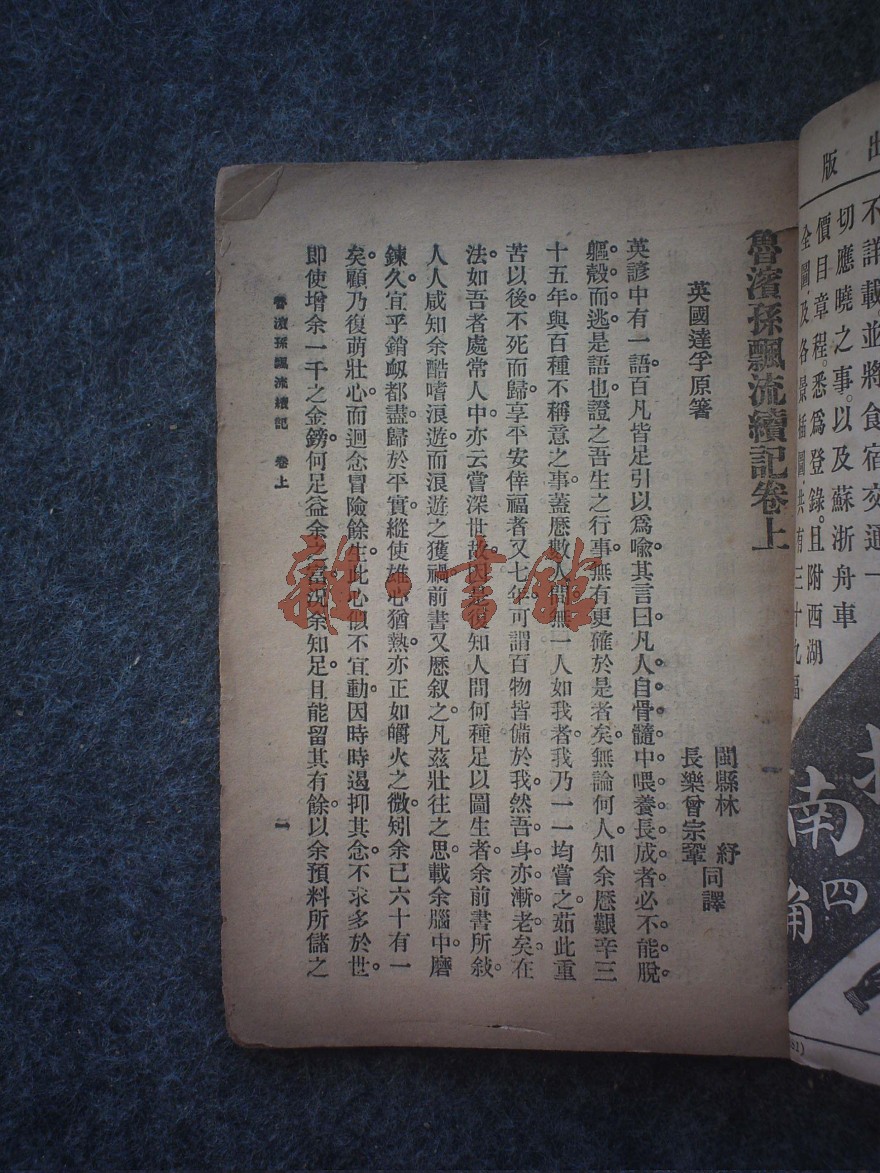 出版
不詳載。並將食宿交通一
切應曉之事。以及蘇浙舟車
價目章程。悉爲登錄。且附西湖
全圖。及各景插圖。共有三十九幅
南
四
角
魯濱孫飄流續記卷上
英國達孚原著
閩縣林　紓
長樂曾宗鞏
同譯
英諺中有一語百凡皆足引以爲喩其言曰凡人自骨髓中喂養長成者必不能脫
軀殼而逃。是語也證之吾生之行事。無有更確於是者矣。無論何人。知余歷艱辛三
十五年。與百種不稱意之事。蓋歷數人間。無一人如我者。我乃一一均嘗之。茹此重
苦以後。不死而歸。享平安倖福者又七年。可謂百物皆備於我。然吾身亦漸老矣。在
法如吾者處常人中。亦云嘗深世故。因是復知人間何種足以圖生者。余前書所敍。
人人咸知余酷嗜浪遊。而浪遊之獲禍。前書又歷叙之。凡茲壯往之思。載余腦中。磨
鍊久。宜乎銷衂都盡。歸於平實。縱使雄心猶熱。亦正如爝火之微。矧余已六十有一
矣。顧乃復萌壯心。而迴念冒險餘生。此心似不宜動。因時時遏抑其念。不求多於世。
即使增余一千之金鎊。何足益余之富。況余知足。且能留其有餘。以余預料所儲之
魯濱孫飄流續記　卷上
一
雜·書館